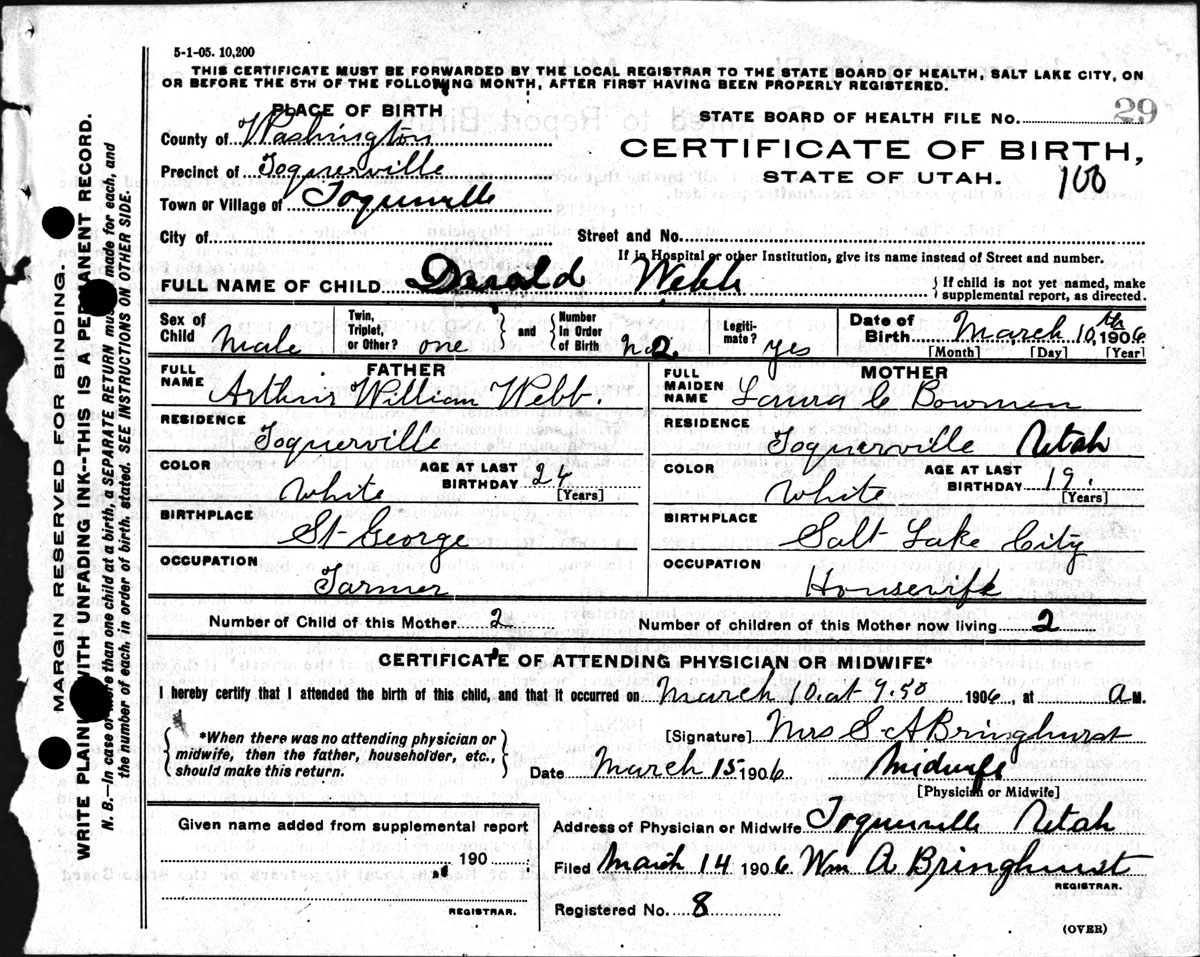 5-1-05. 10,200
THIS CERTIFICATE MUST BE FORWARDED BY THE LOCAL REGISTRAR TO THE STATE BOARD OF HEALTH, SALT LAKE CITY, ON
OR BEFORE THE 5TH OF THE FOLLOWING MONTH, AFTER FIRST HAVING BEEN PROPERLY REGISTERED.
PLACE OF BIRTH
County of Washington
Precinct of Toquerville
Town or Village of Toquerville
City of
STATE BOARD OF HEALTH FILE NO. 29
CERTIFICATE OF BIRTH,
STATE OF UTAH. 100
Street and No.
If in Hospital or other Institution, give its name instead of Street and number.
FULL NAME OF CHILD Derald Webb
If child is not yet named, make
supplemental report, as directed.
Sex of Child Male
Twin, Triplet, or Other? one
and
Number in Order of Birth No 2.
Legiti-mate? yes
Date of Birth March 10th 1906
[Month] [Day] [Year]
FATHER
FULL NAME Arthur William Webb.
RESIDENCE
Toquerville
COLOR White
AGE AT LAST BIRTHDAY 24 [Years]
BIRTHPLACE
St George
OCCUPATION
Farmer
MOTHER
FULL MAIDEN NAME Laura C Bowmen
RESIDENCE
Toquerville Utah
COLOR White
AGE AT LAST BIRTHDAY 19. [Years]
BIRTHPLACE
Salt Lake City
OCCUPATION
Housewife
Number of Child of this Mother 2 Number of children of this Mother now living 2
CERTIFICATE OF ATTENDING PHYSICIAN OR MIDWIFE*
I hereby certify that I attended the birth of this child, and that it occurred on March 10. at 9.50 1906, at a M.
*When there was no attending physician or
midwife, then the father, householder, etc.,
should make this return.
[Signature] Mrs S A Bringhurst
Date March 15 1906 Midwife
[Physician or Midwife]
Given name added from supplemental report
190
REGISTRAR.
Address of Physician or Midwife Toquerville Utah
Filed March 14 1906 Wm A Bringhurst
REGISTRAR.
Registered No. 8
(OVER)
MARGIN RESERVED FOR BINDING.
WRITE PLAINLY WITH UNFADING INK--THIS IS A PERMANENT RECORD.
N. B.—In case of more than one child at a birth, a SEPARATE RETURN must be made for each, and
the number of each, in order of birth, stated. SEE INSTRUCTIONS ON OTHER SIDE.